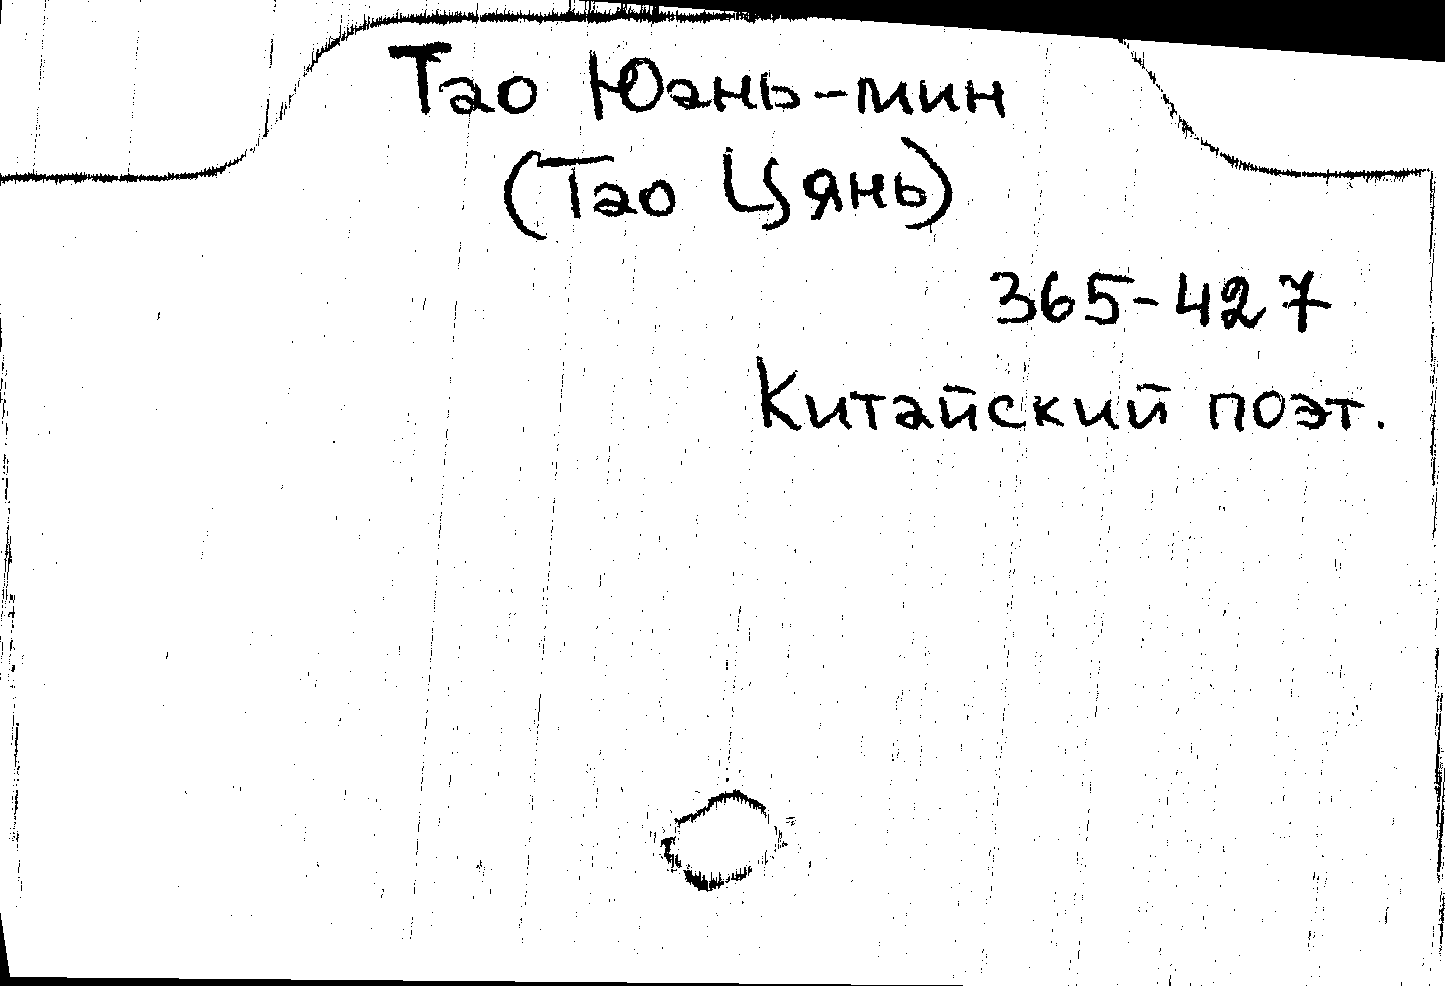 Тао Юань-мин
(Тао Цянь)
365-427
Китайский поэт.